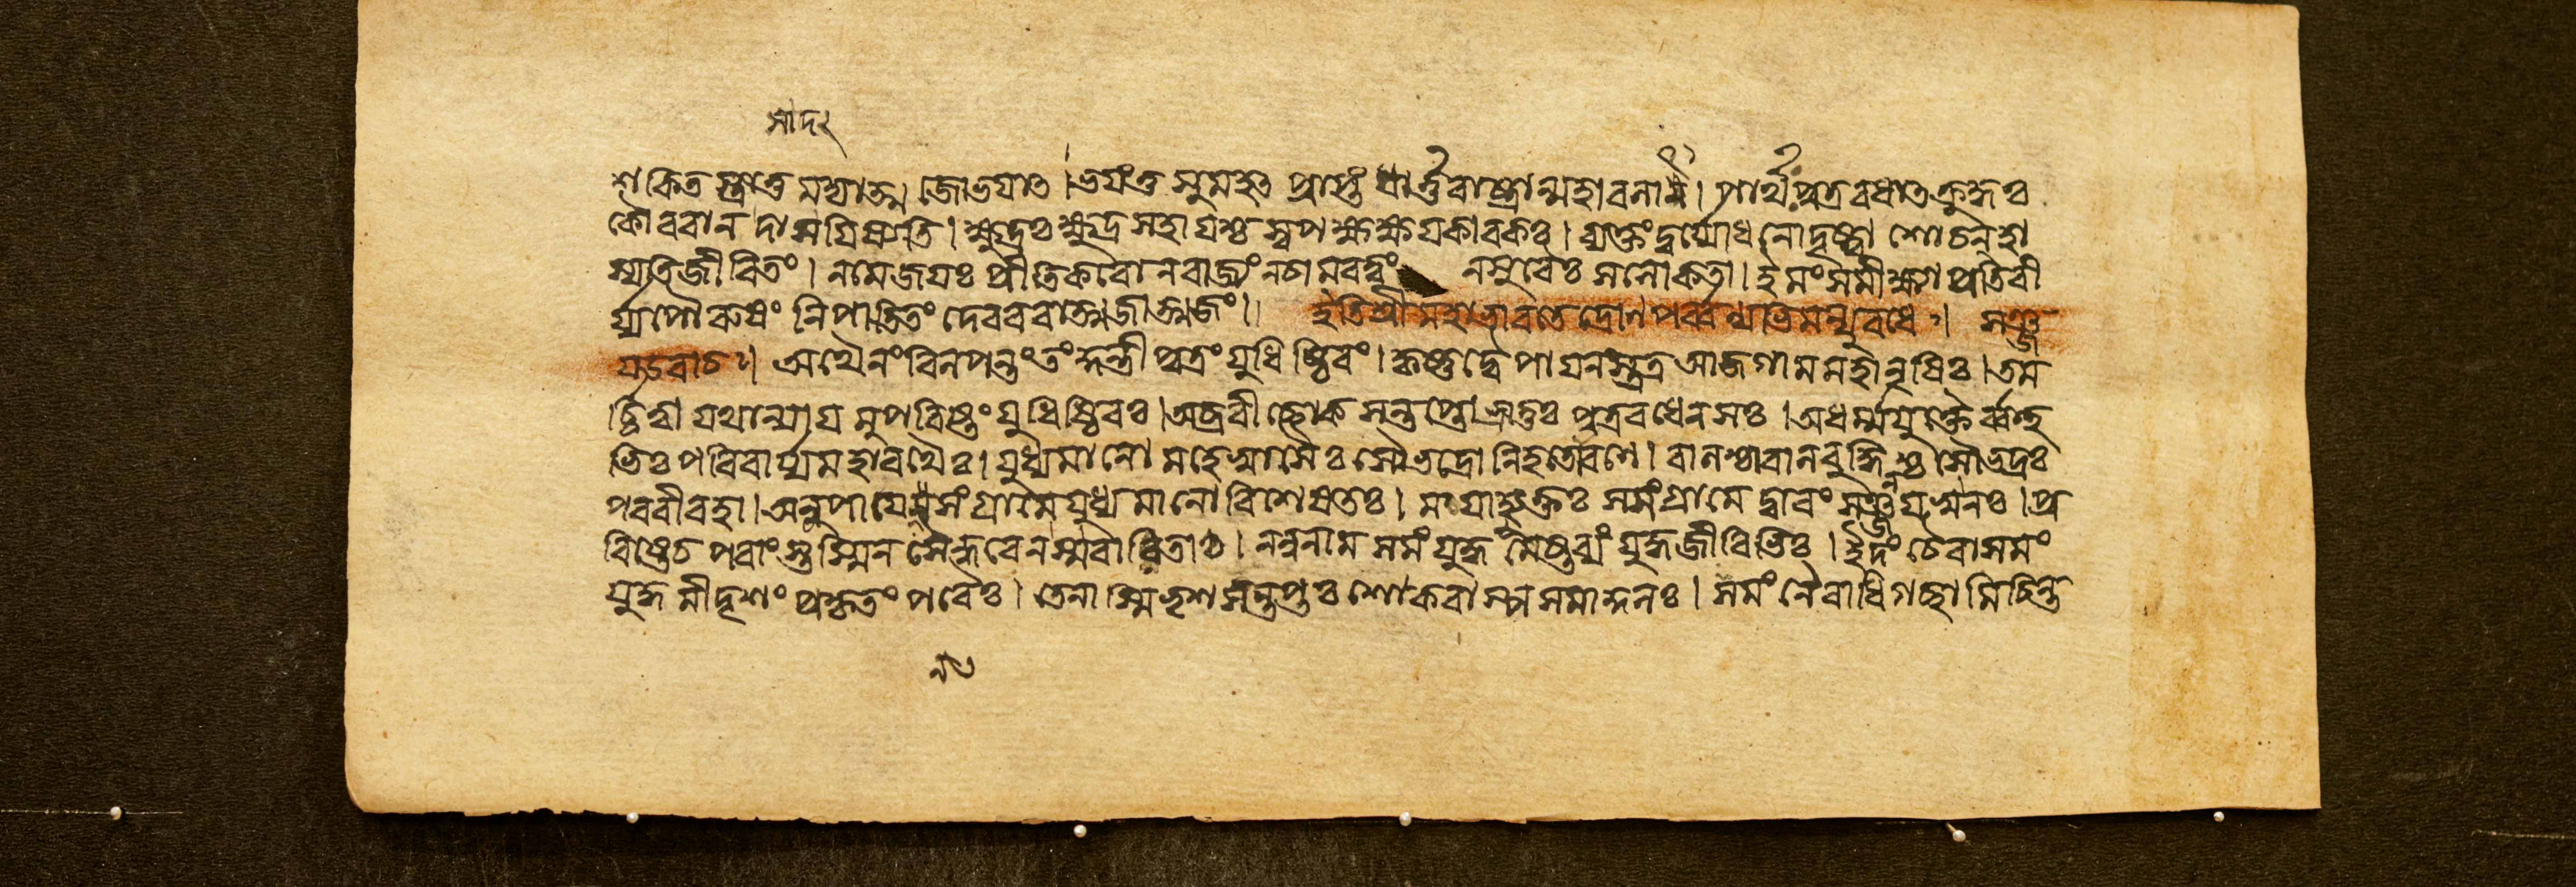 সাদ২
শকিতস্ত্রাতুমদ্যাত্ম জোভযাৎ। ভযংতু সুমহৎ প্রাপ্তং ধার্ত্তবাষ্ট্রান্মহাবলান্। পার্থঃ পুত্রবধাৎক্রুদ্ধঃ
কৌববান্ দাসযিষ্যতি। ক্ষুদ্রঃ ক্ষুদ্রসহাযশ্চ স্বপক্ষক্ষযকাবকঃ। ব্যক্তং দুর্য্যোধনো দৃষ্ট্বা শোচন্ হা
স্যতিজীবিতং। নমেজযঃ প্রীতিকবো নবাজ্যং নচামবত্বং নসুবৈঃ সলোকতা। ইমং সমীক্ষ্যাপ্রতিবী
র্য্যপৌৰুষং নিপাতিতং দেববৰাত্মজাত্মজং।। ইতিশ্রীমহাভাবতে দ্রোণপর্ব্বণ্যভিমন্যুবধে। সঞ্জ
যউবাচ। অথৈনংবিলপন্তং তং কুন্তীপুত্রং যুধিষ্ঠিবং। কৃষ্ণদ্বৈপাযনস্তত্র আজগাম মহানৃষিঃ। তম
র্চ্চিত্বা যথান্যায মুপবিষ্টং যুধিষ্ঠিবঃ। অব্রবীচ্ছোক সন্তপ্তো ভ্রাতুঃ পুত্রবধেন সঃ। অধর্ম্মযুক্তৈর্ব্বহু
ভিঃ পবিবার্য্য মহাবথৈঃ। যুধ্যমানো মহেষ্বাসৈঃ সৌভদ্রো নিহতোবণে। বালশ্চাবালবুদ্ধিশ্চ সৌভদ্রঃ
পববীবহা। অনুপাযেন সংগ্রামে যুধ্যমানো বিশেষতঃ। মযা প্রোক্তঃ সসংগ্রামে দ্বাবং সঞ্জনযস্বনঃ। প্র
বিষ্টেচ পবাংস্তস্মিন্ সৈন্ধবেন স্মবাবিতাঃ। ননুনাম সমং যুদ্ধ মেষ্টব্যং যুদ্ধজীবিভিঃ। ইদং চৈবাসমং
যুদ্ধ মীদৃশং প্রকৃতং পবৈঃ। তেনাস্মি ভৃশসন্তপ্তঃ শোকবাষ্প সমাকুলঃ। সমং নৈবাধিগচ্ছামি চিন্ত